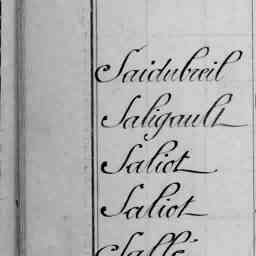 Saidubreil
Saligault
Saliot
Saliot
Sallé